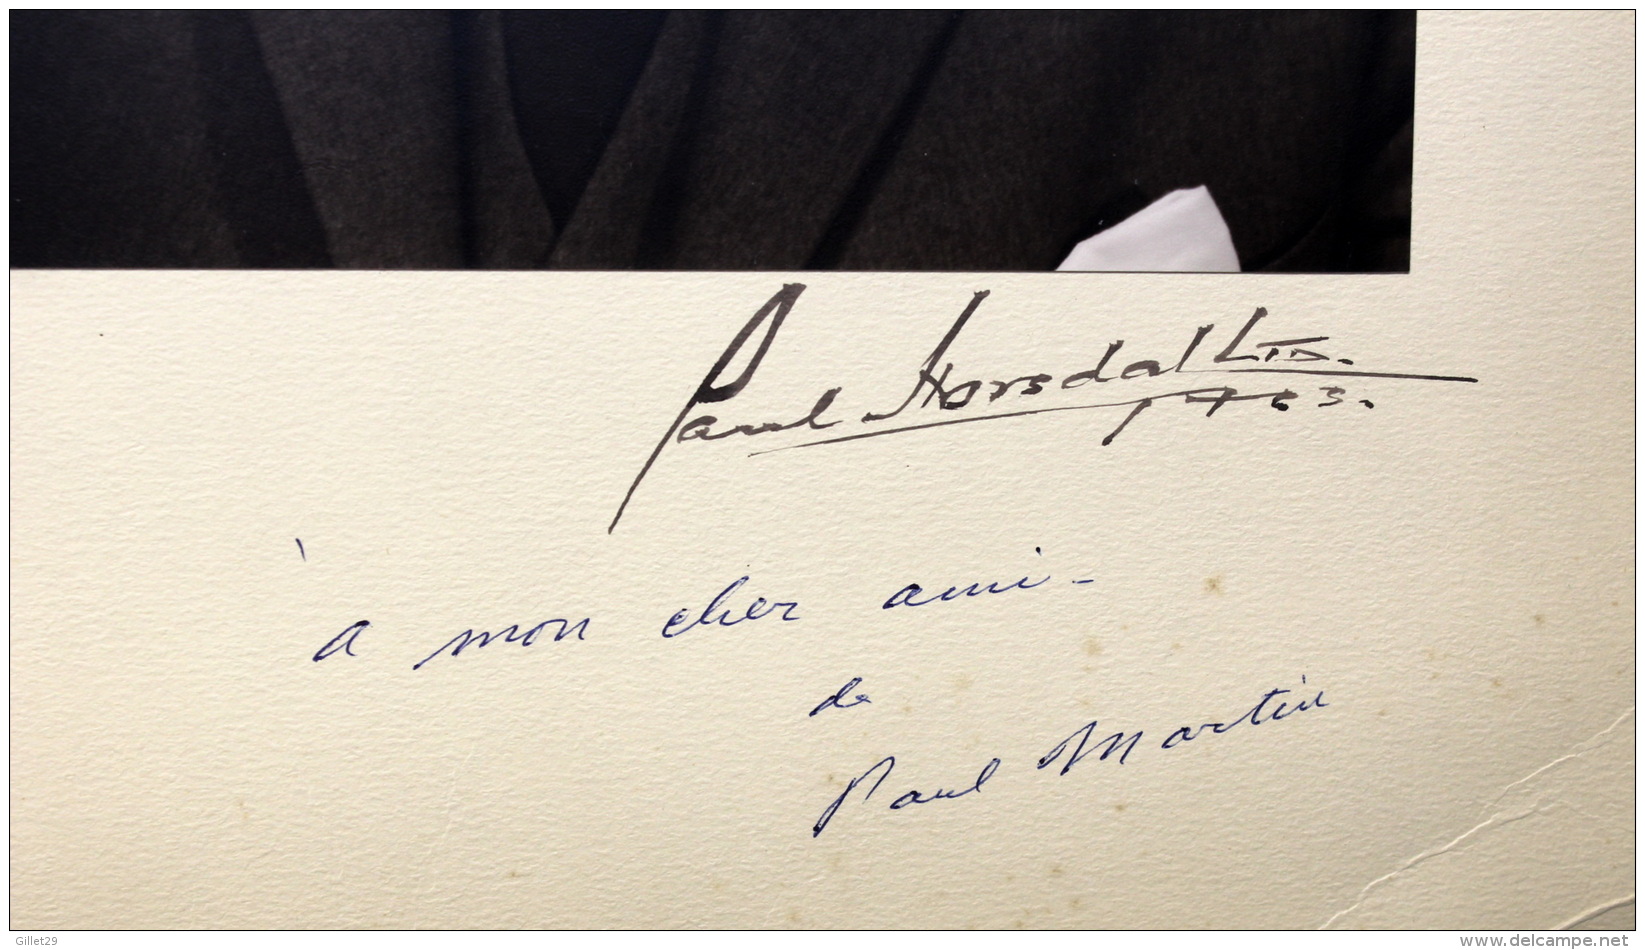 Paul Horsdal LTD.
1963.
à mon cher ami -
de
Paul Martin
Gillet29
www.delcampe.net